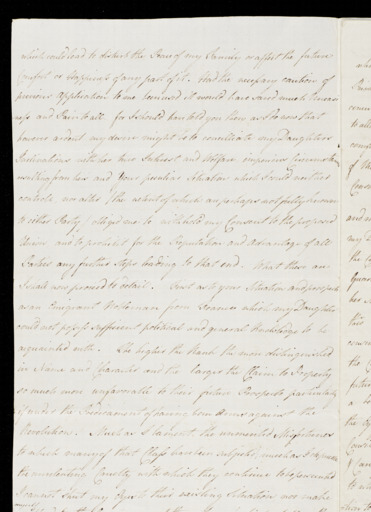 which would lead to disturb the Peace of my Family or affect the future
Comfort or Happiness of any part of it. Had the necessary caution of
previous Application to me been used it would have saved much Uneasi-
ness and Pain to all for I should have told you then as I do now that
however ardent my desire might be to conciliate my Daughters
Inclinations with her true Interest and Welfare imperious circumstances
resulting from hers and Your peculiar Situation which I could neither
controle nor alter (the extent of which are perhaps not fully known
to either Party) oblige me to withhold my Consent to the proposed
Union, and to prohibit for the Reputation and advantage of all
Parties any further steps leading to that end. What these are
I shall now proceed to detail. First as to your Situation and prospects
as an Emigrant Nobleman from France which my Daughter
could not possess sufficient political and general Knowledge to be
acquainted with. The higher the Rank the more distinguished
the Name and Character and the larger the Claim to Property
so much more unfavorable to their future Prospects particularly
if under the Predicament of having born Arms against the
Revolution. Much as I lament the unmerited Misfortunes
to which many of that Class have been subjected, much as I
the unrelenting Cruelty with which they continue to be persecuted
I cannot shut my eyes to their existing Situation nor make